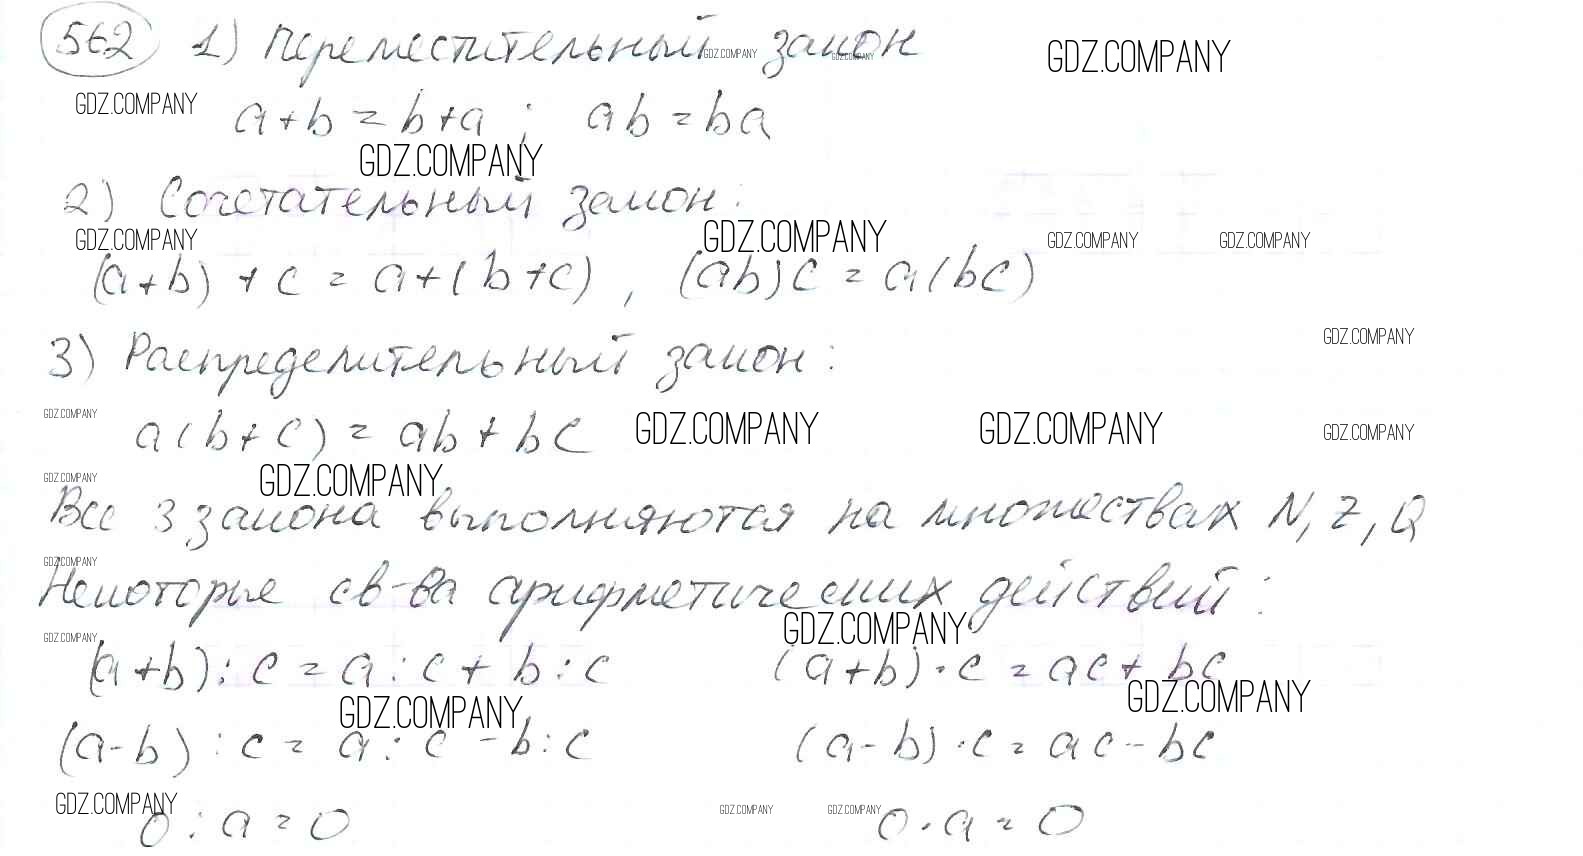 562 1) Переместительный закон
GDZ.COMPANY GDZ.COMPANY GDZ.COMPANY
GDZ.COMPANY
a+b=b+a; ab=ba
GDZ.COMPANY
2) Сочетательный закон:
GDZ.COMPANY GDZ.COMPANY GDZ.COMPANY GDZ.COMPANY
(a+b)+c=a+(b+c), (ab)c=a(bc)
GDZ.COMPANY
3) Распределительный закон:
GDZ.COMPANY GDZ.COMPANY GDZ.COMPANY GDZ.COMPANY
a(b+c)=ab+bc
GDZ.COMPANY GDZ.COMPANY
Все 3 закона выполняются на множествах N, Z, Q
GDZ.COMPANY
Некоторые св-ва арифметических действий:
GDZ.COMPANY GDZ.COMPANY
(a+b):c=a:c+b:c (a+b)·c=ac+bc
GDZ.COMPANY GDZ.COMPANY
(a-b):c=a:c-b:c (a-b)·c=ac-bc
GDZ.COMPANY GDZ.COMPANY GDZ.COMPANY
0:a=0 0·a=0